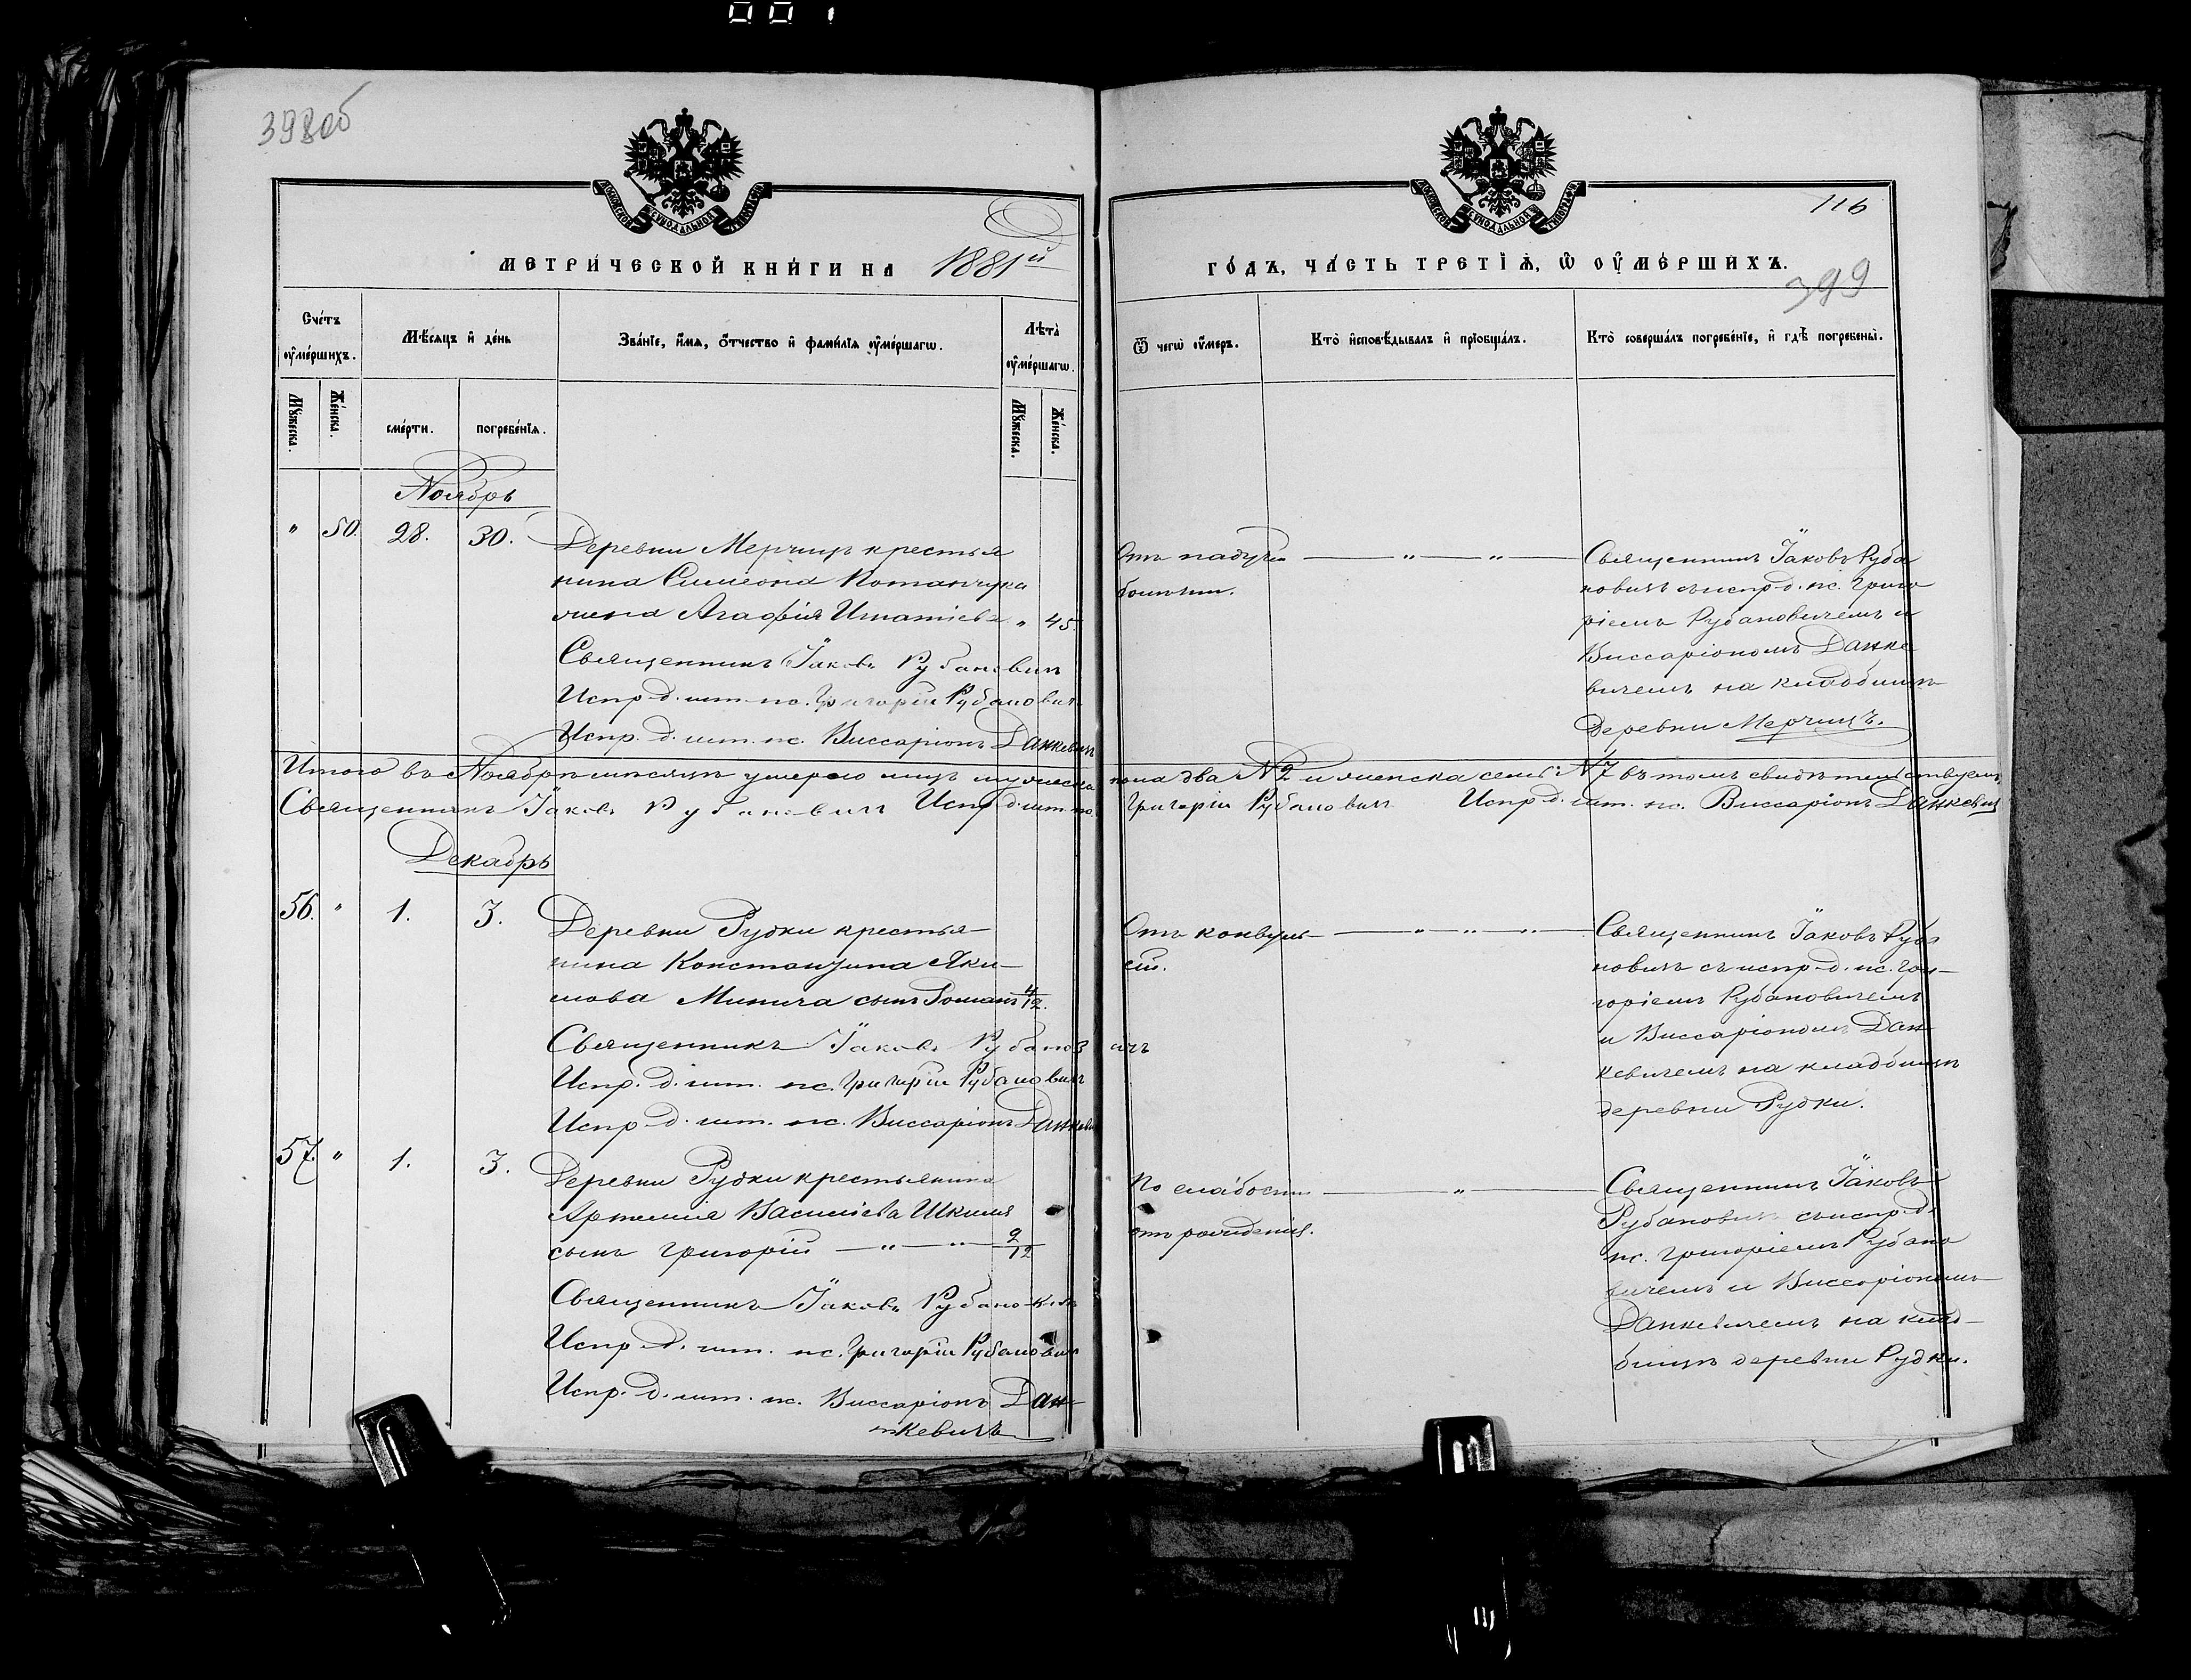 001
398об
116
МЕТРИЧЕСКОЙ КНИГИ НА 1881й
ГОДЪ, ЧАСТЬ ТРЕТІѦ, Ѿ ОУМЕРШИХЪ.
399
Счетъ оумершихъ.
Мѣсяцъ и день
Званіе, имя, отчество и фамилія оумершагѡ.
Лѣта оумершагѡ.
Ѿ чегѡ оумеръ.
Кто исповѣдывалъ и пріобщалъ.
Кто совершалъ погребеніе, и гдѣ погребены.
Мужеска.
Женска.
смерти.
погребенія.
Мужеска.
Женска.
Ноябрь
" 50. 28. 30.
Деревни Мерчицъ крестья
нина Симеона Потапчука
жена Агафія Игнатіева " 45.
Священникъ Іаковъ Рубановичъ
Испр. д. шт. пс. Григорій Рубановичъ
Испр. д. шт. пс. Виссаріонъ Данкевичъ
Отъ падучей
болѣзни.
Священникъ Іаковъ Руба
новичъ съ испр. д. пс. Григо
ріемъ Рубановичемъ и
Виссаріономъ Данке
вичемъ на кладбищѣ
деревни Мерчицъ.
Итого въ Ноябрѣ мѣсяцѣ умерло лицъ мужеска пола два № 2 и женска семь № 7 въ томъ свидѣтельствуемъ
Священникъ Іаковъ Рубановичъ Испр. д. шт. пс. Григорій Рубановичъ Испр. д. шт. пс. Виссаріонъ Данкевичъ
Декабрь
56. " 1. 3.
Деревни Рудки крестья-
нина Константина Яки-
мова Минича сынъ Романъ 4/12.
Священникъ Іаковъ Рубановичъ
Испр. д. шт. пс. Григорій Рубановичъ
Испр. д. шт. пс. Виссаріонъ Данкевичъ
Отъ конвуль-
сій.
Священникъ Іаковъ Руба
новичъ съ испр. д. пс. Гри-
горіемъ Рубановичемъ
и Виссаріономъ Дан-
кевичемъ на кладбищѣ
деревни Рудки.
57. " 1. 3.
Деревни Рудки крестьянина
Артемія Василіева
сынъ Григорій — " — " — 2/12
Священникъ Іаковъ Рубановичъ
Испр. д. шт. пс. Григорій Рубановичъ
Испр. д. шт. пс. Виссаріонъ Дан-
кевичъ
По слабости
отъ рожденія.
Священникъ Іаковъ
Рубановичъ съ испр. д.
пс. Григоріемъ Рубано
вичемъ и Виссаріономъ
Данкевичемъ на клад-
бищѣ деревни Рудки.